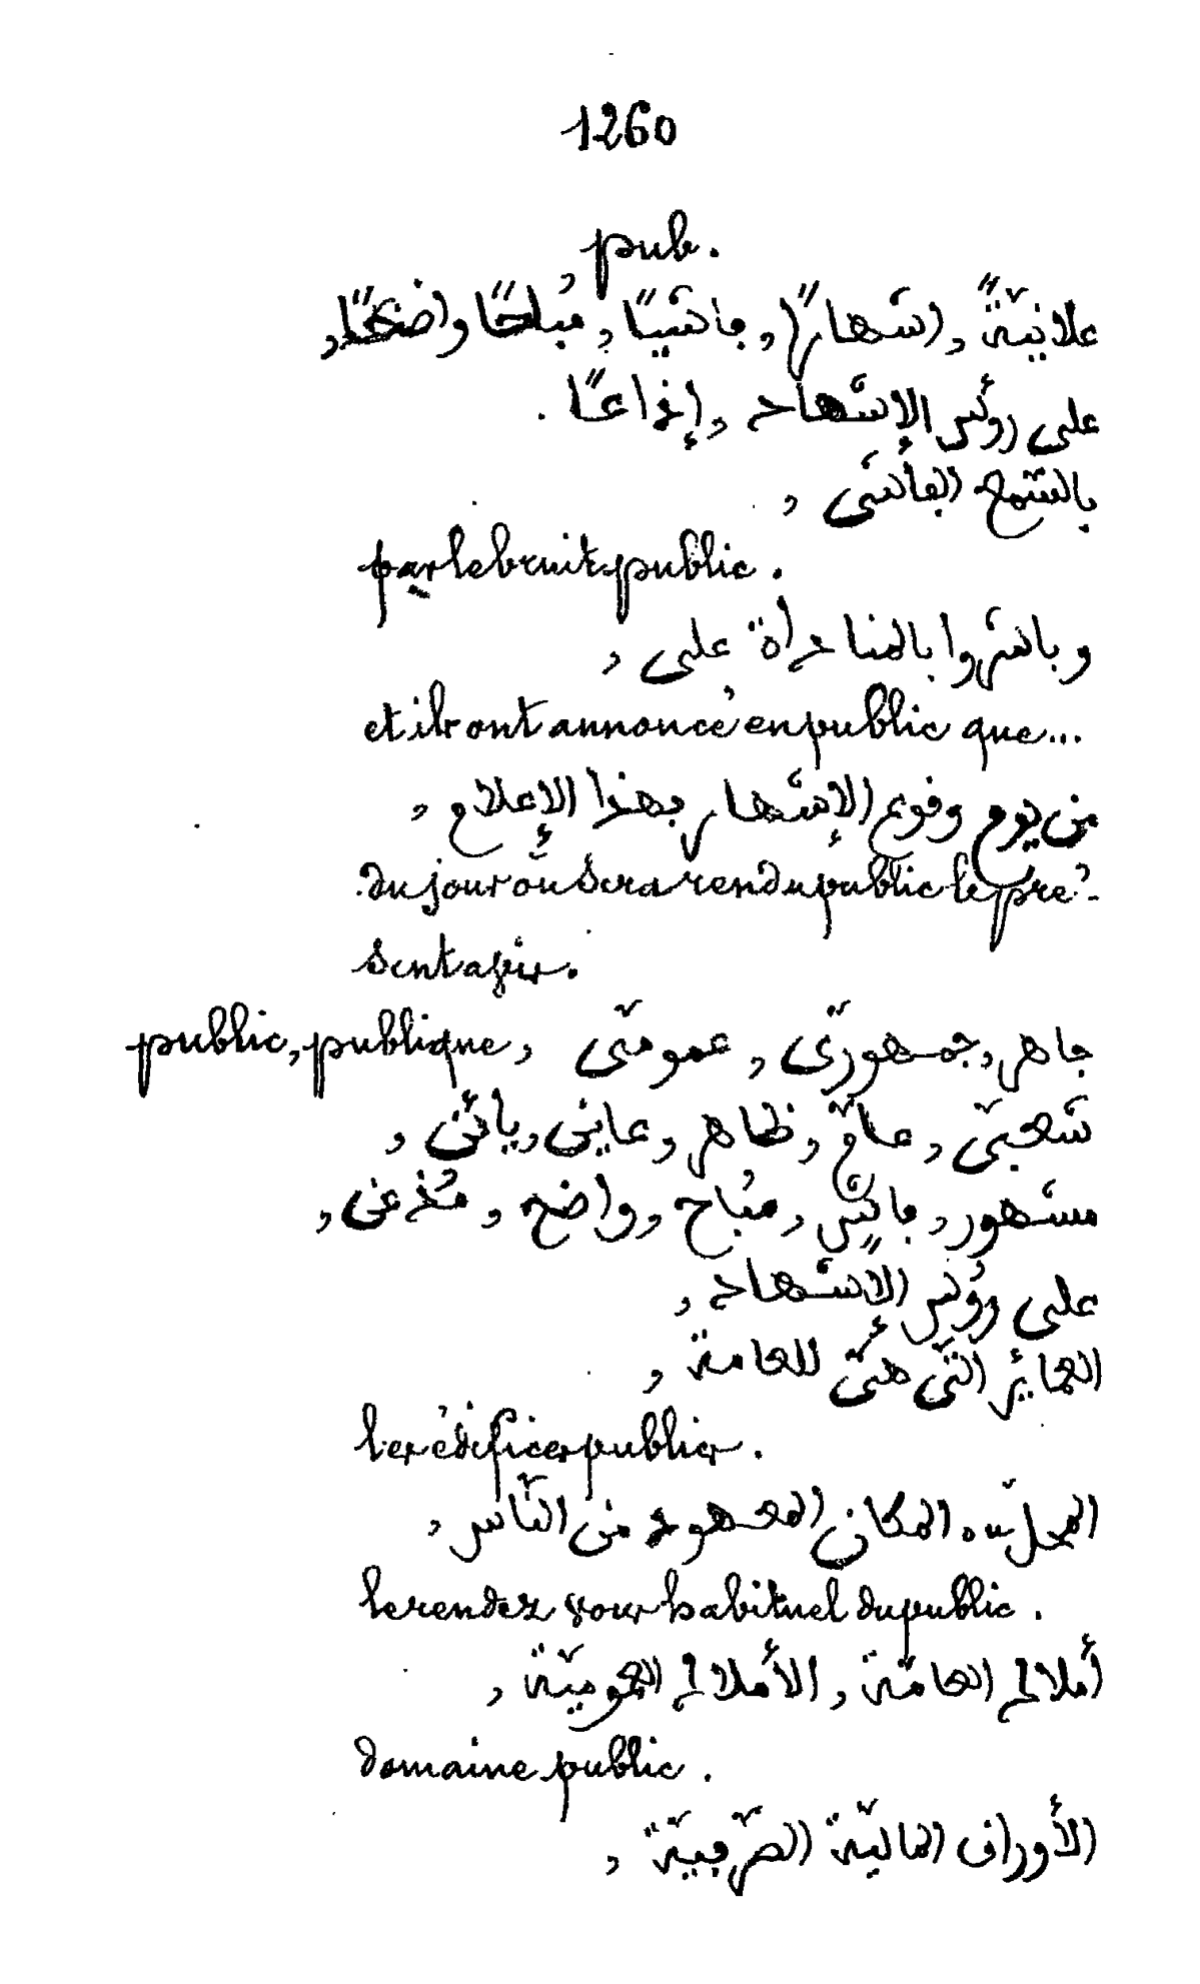 1260
pub.
علانيّةً, اشهارًا, فاشيًا, مُباحًا واضحًا,
على رؤس الإشهاد, إذاعًا.
بالسّمع الفاشى,
par le bruit public.
وباشروا بالمناداة على,
et ils ont annoncé en public que...
من يوم وقوع الإشهار بهذا الإعلام,
du jour où sera rendu public le pré-
sent avis.
public, publique, جاهر, جمهوريّ, عموميّ,
شعبيّ, عامّ, ظاهر, عاين, بائن,
مشهور, فاشٍ, مُباح, واضح, مُذعن,
على رؤس الإشهاد,
العمائر الّتى هىّ للعامة,
les édifices publics.
المحلّ ه المكان المعهود من النّاس,
le rendez vous habituel du public.
أملاك العامّة, الأملاك العموميّة,
domaine public.
الأوراق الماليّة الصّرفيّة,